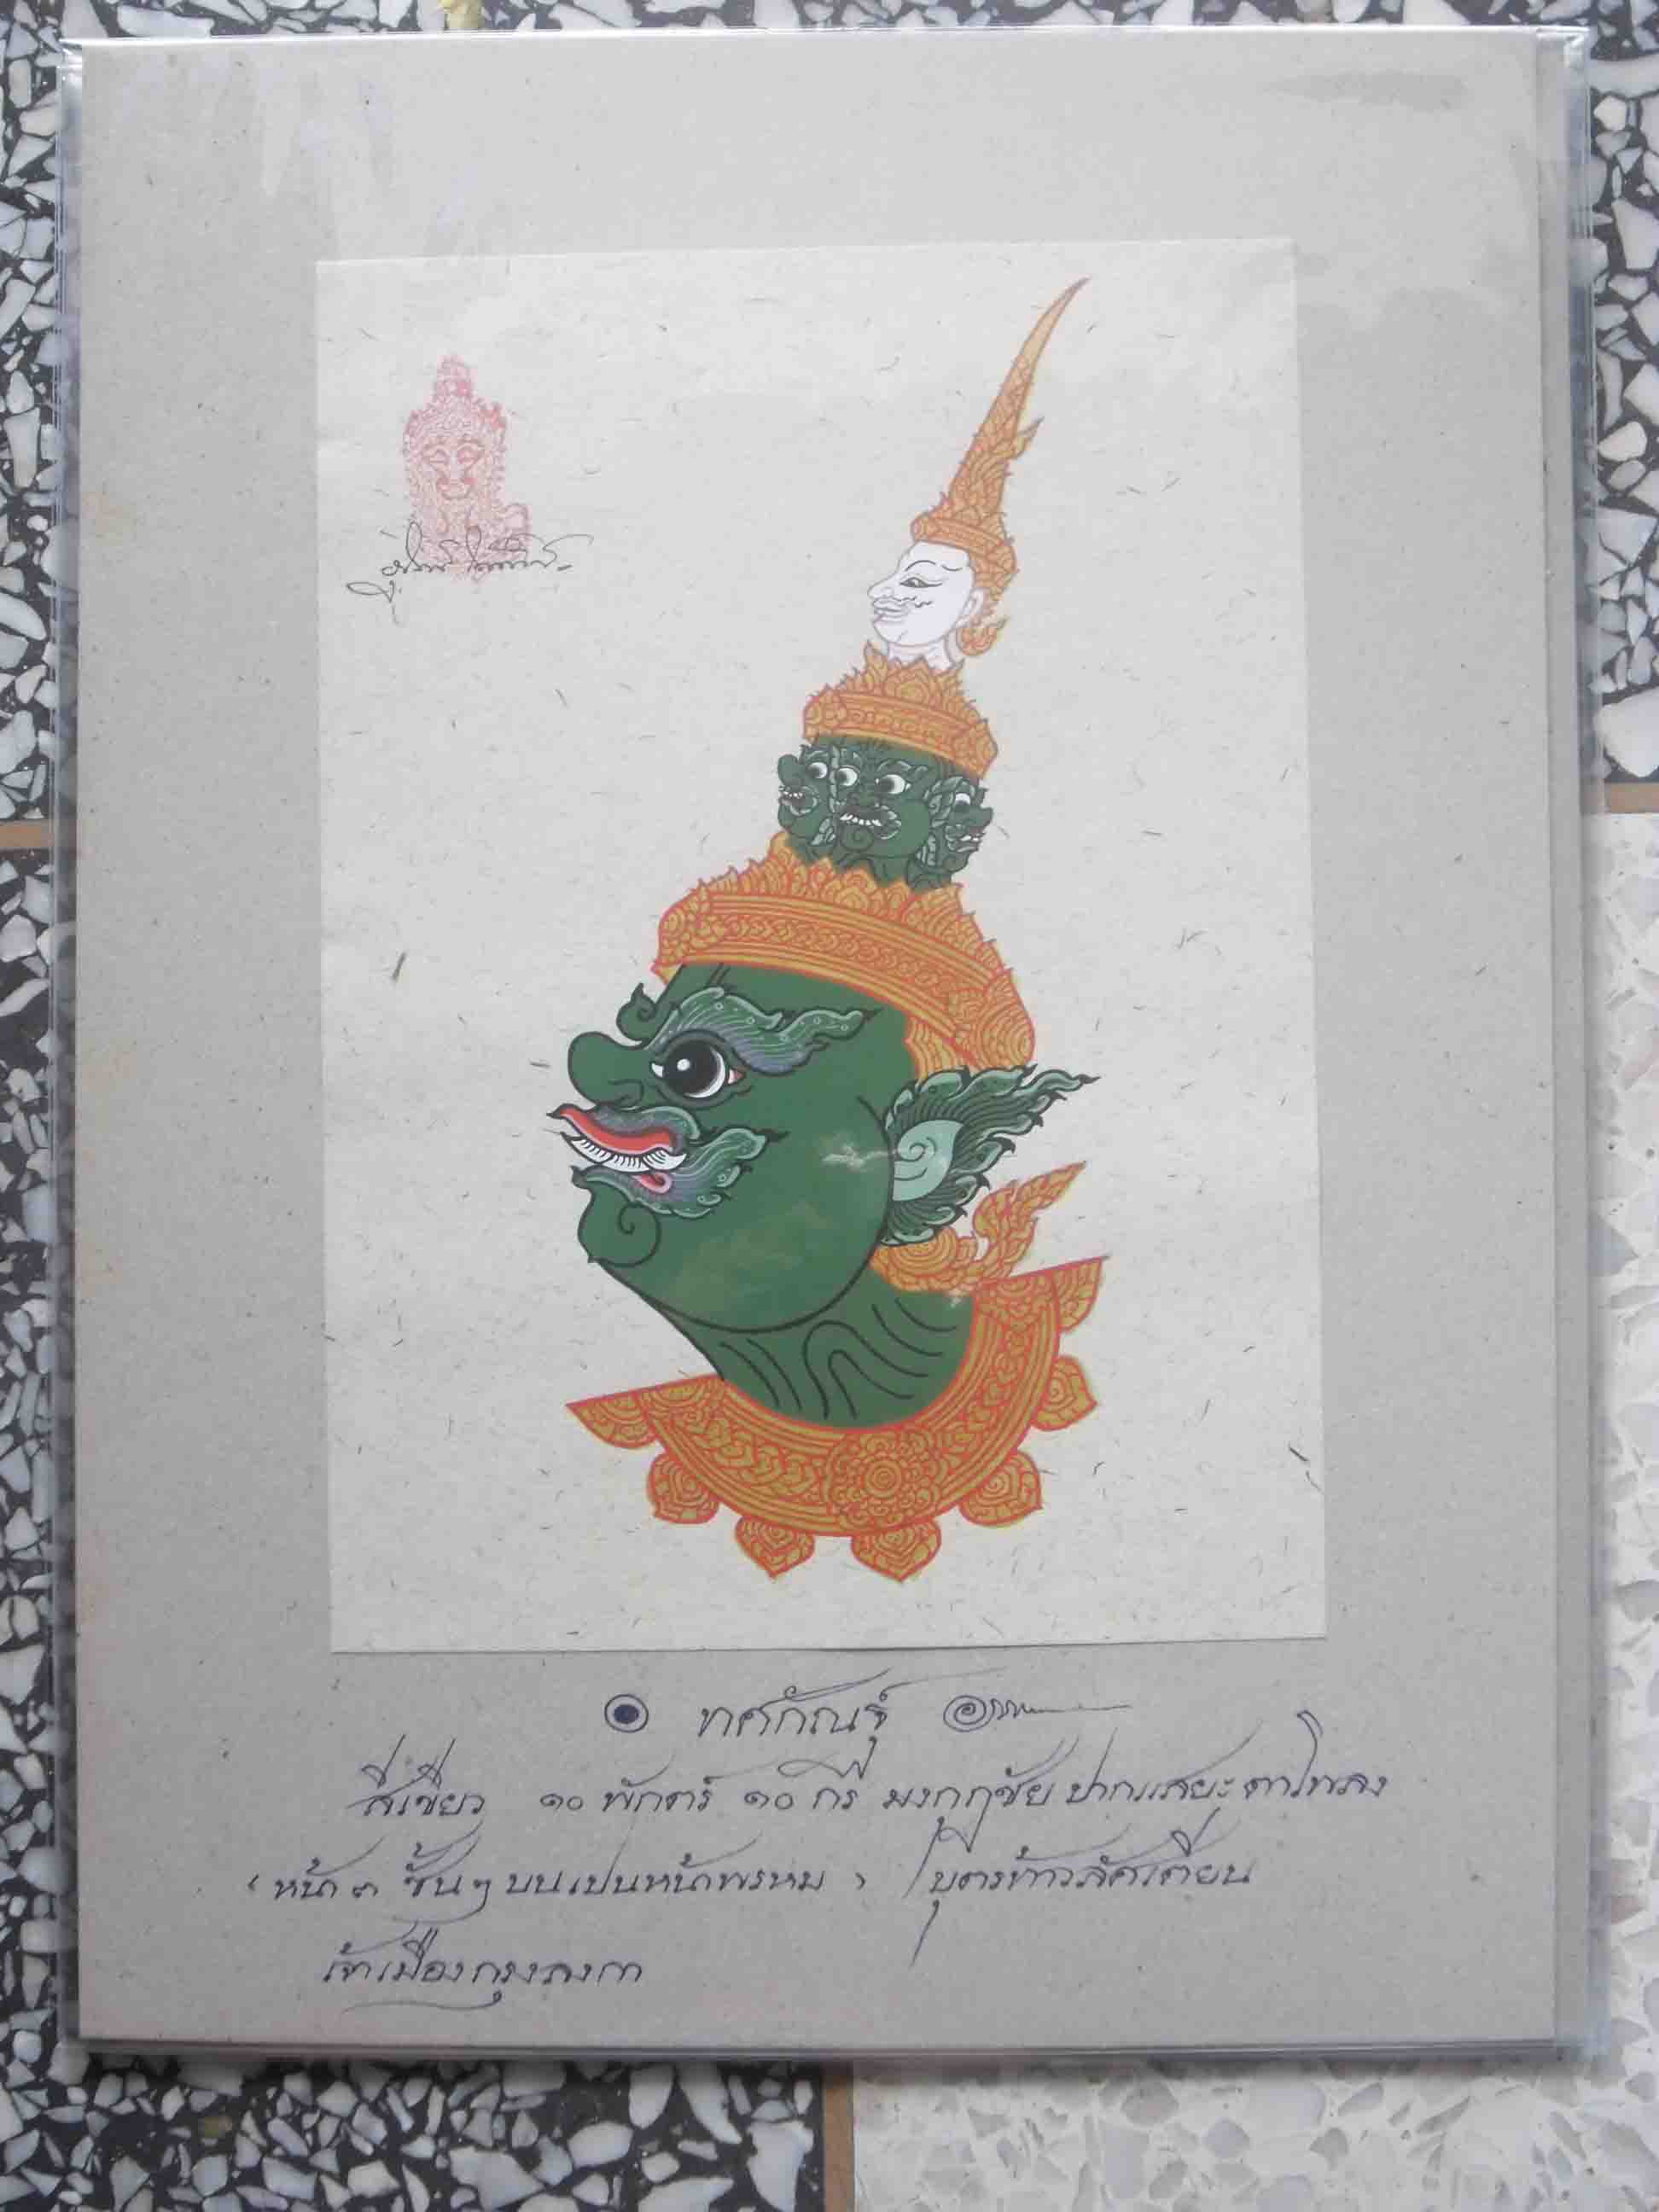 ทศกัณฐ์
สีเขียว ๑๐ พักตร์ ๒๐ กร มงกุฎชัย ปากแสยะ ตาโพลง
(หน้า ๓ ชั้น ๆ บนเปนหน้าพรหม) บุตรท้าวลัศเตียน
เจ้าเมืองกรุงลงกา